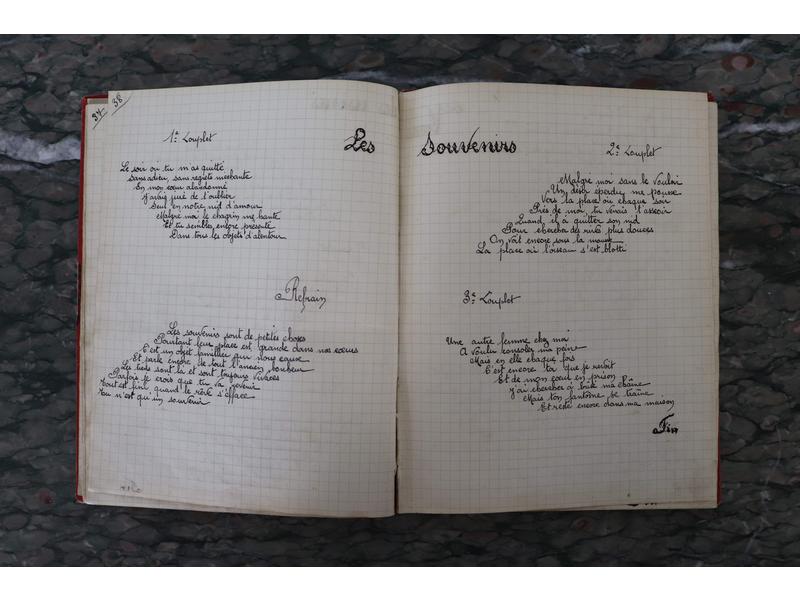 37
38
Les Souvenirs
1e Couplet
Le soir où tu m'as quitté
Sans adieu, sans regrets méchante
En mon cœur abandonné
J'avais juré de t'oublier
Seul en notre nid d'amour
Malgré moi le chagrin me hante
Et tu sembles encore présente
Dans tous les objets d'alentour
Refrain
Les souvenirs sont de petites choses
Pourtant leur place est grande dans nos cœurs
C'est un objet familier qui nous cause
Et parle encore de tout l'ancien bonheur
Les liens sont là et sont toujours vivaces
Parfois je crois que tu va revenir
Tout est fini quand le rêve s'efface
Tu n'est qu'un souvenir
2e Couplet
Malgré moi sans le vouloir
Un désir éperdu me pousse
Vers la place où chaque soir
Près de moi, tu venais t'asseoir
Quand il a quitter son nid
Pour chercher des rives plus douces
On voit encore sous la mousse
La place où l'oiseau s'est blotti
3e Couplet
Une autre femme chez moi
A voulu consoler ma peine
Mais en elle chaque fois
C'est encore toi que je revoit
Et de mon cœur en prison
J'ai chercher à brisé ma chaîne
Mais ton fantôme se traîne
Et reste encore dans ma maison
Fin